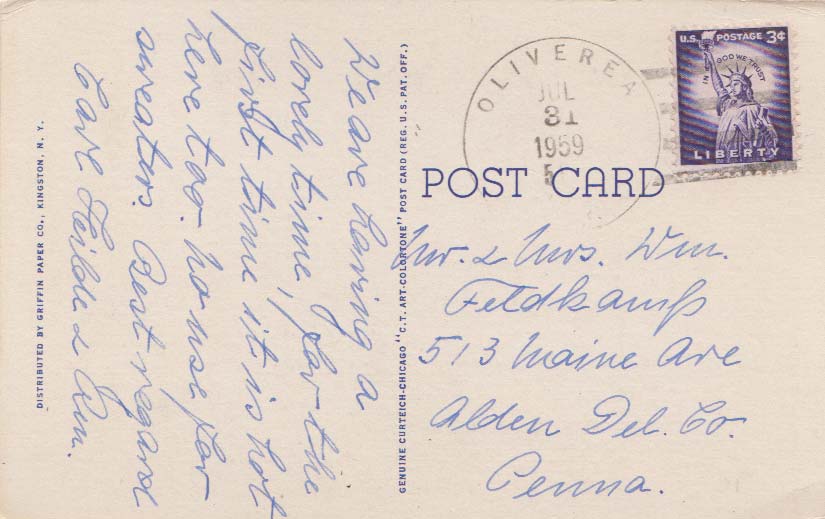 We are having a
lovely time, for the
first time it is hot
here too. no use for
sweaters. Best regard
Carl Heilde & Rm.
DISTRIBUTED BY GRIFFIN PAPER CO., KINGSTON, N. Y.
GENUINE CURTEICH-CHICAGO "C.T. ART-COLORTONE" POST CARD (REG. U.S. PAT. OFF.)
OLIVEREA
JUL
31
1959
U.S. POSTAGE 3¢
IN GOD WE TRUST
LIBERTY
POST CARD
Mr. & Mrs. Wm.
Feldkamp
513 Maine Ave
Alden Del. Co.
Penna.